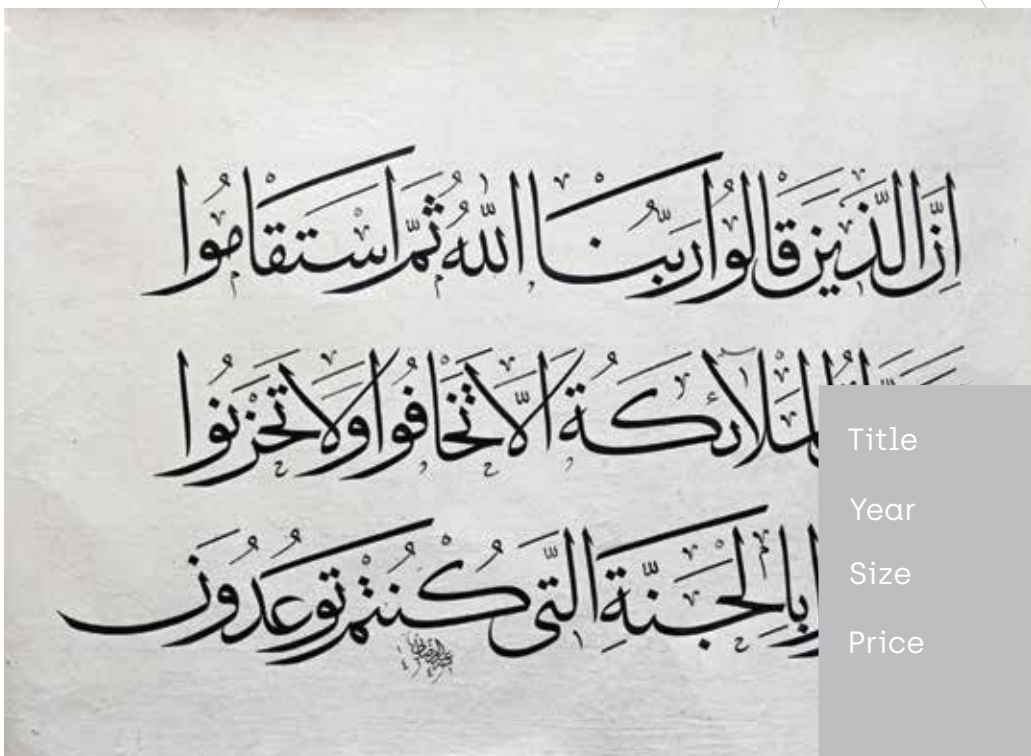 إِنَّ الَّذِينَ قَالُوا رَبُّنَا اللّٰهُ ثُمَّ اسْتَقَامُوا
لمَلَآئِكَةُ اَلَّا تَخَافُوا وَلَا تَحْزَنُوا
بِالْجَنَّةِ الَّتِى كُنْتُمْ تُوعَدُونَ
Title
Year
Size
Price